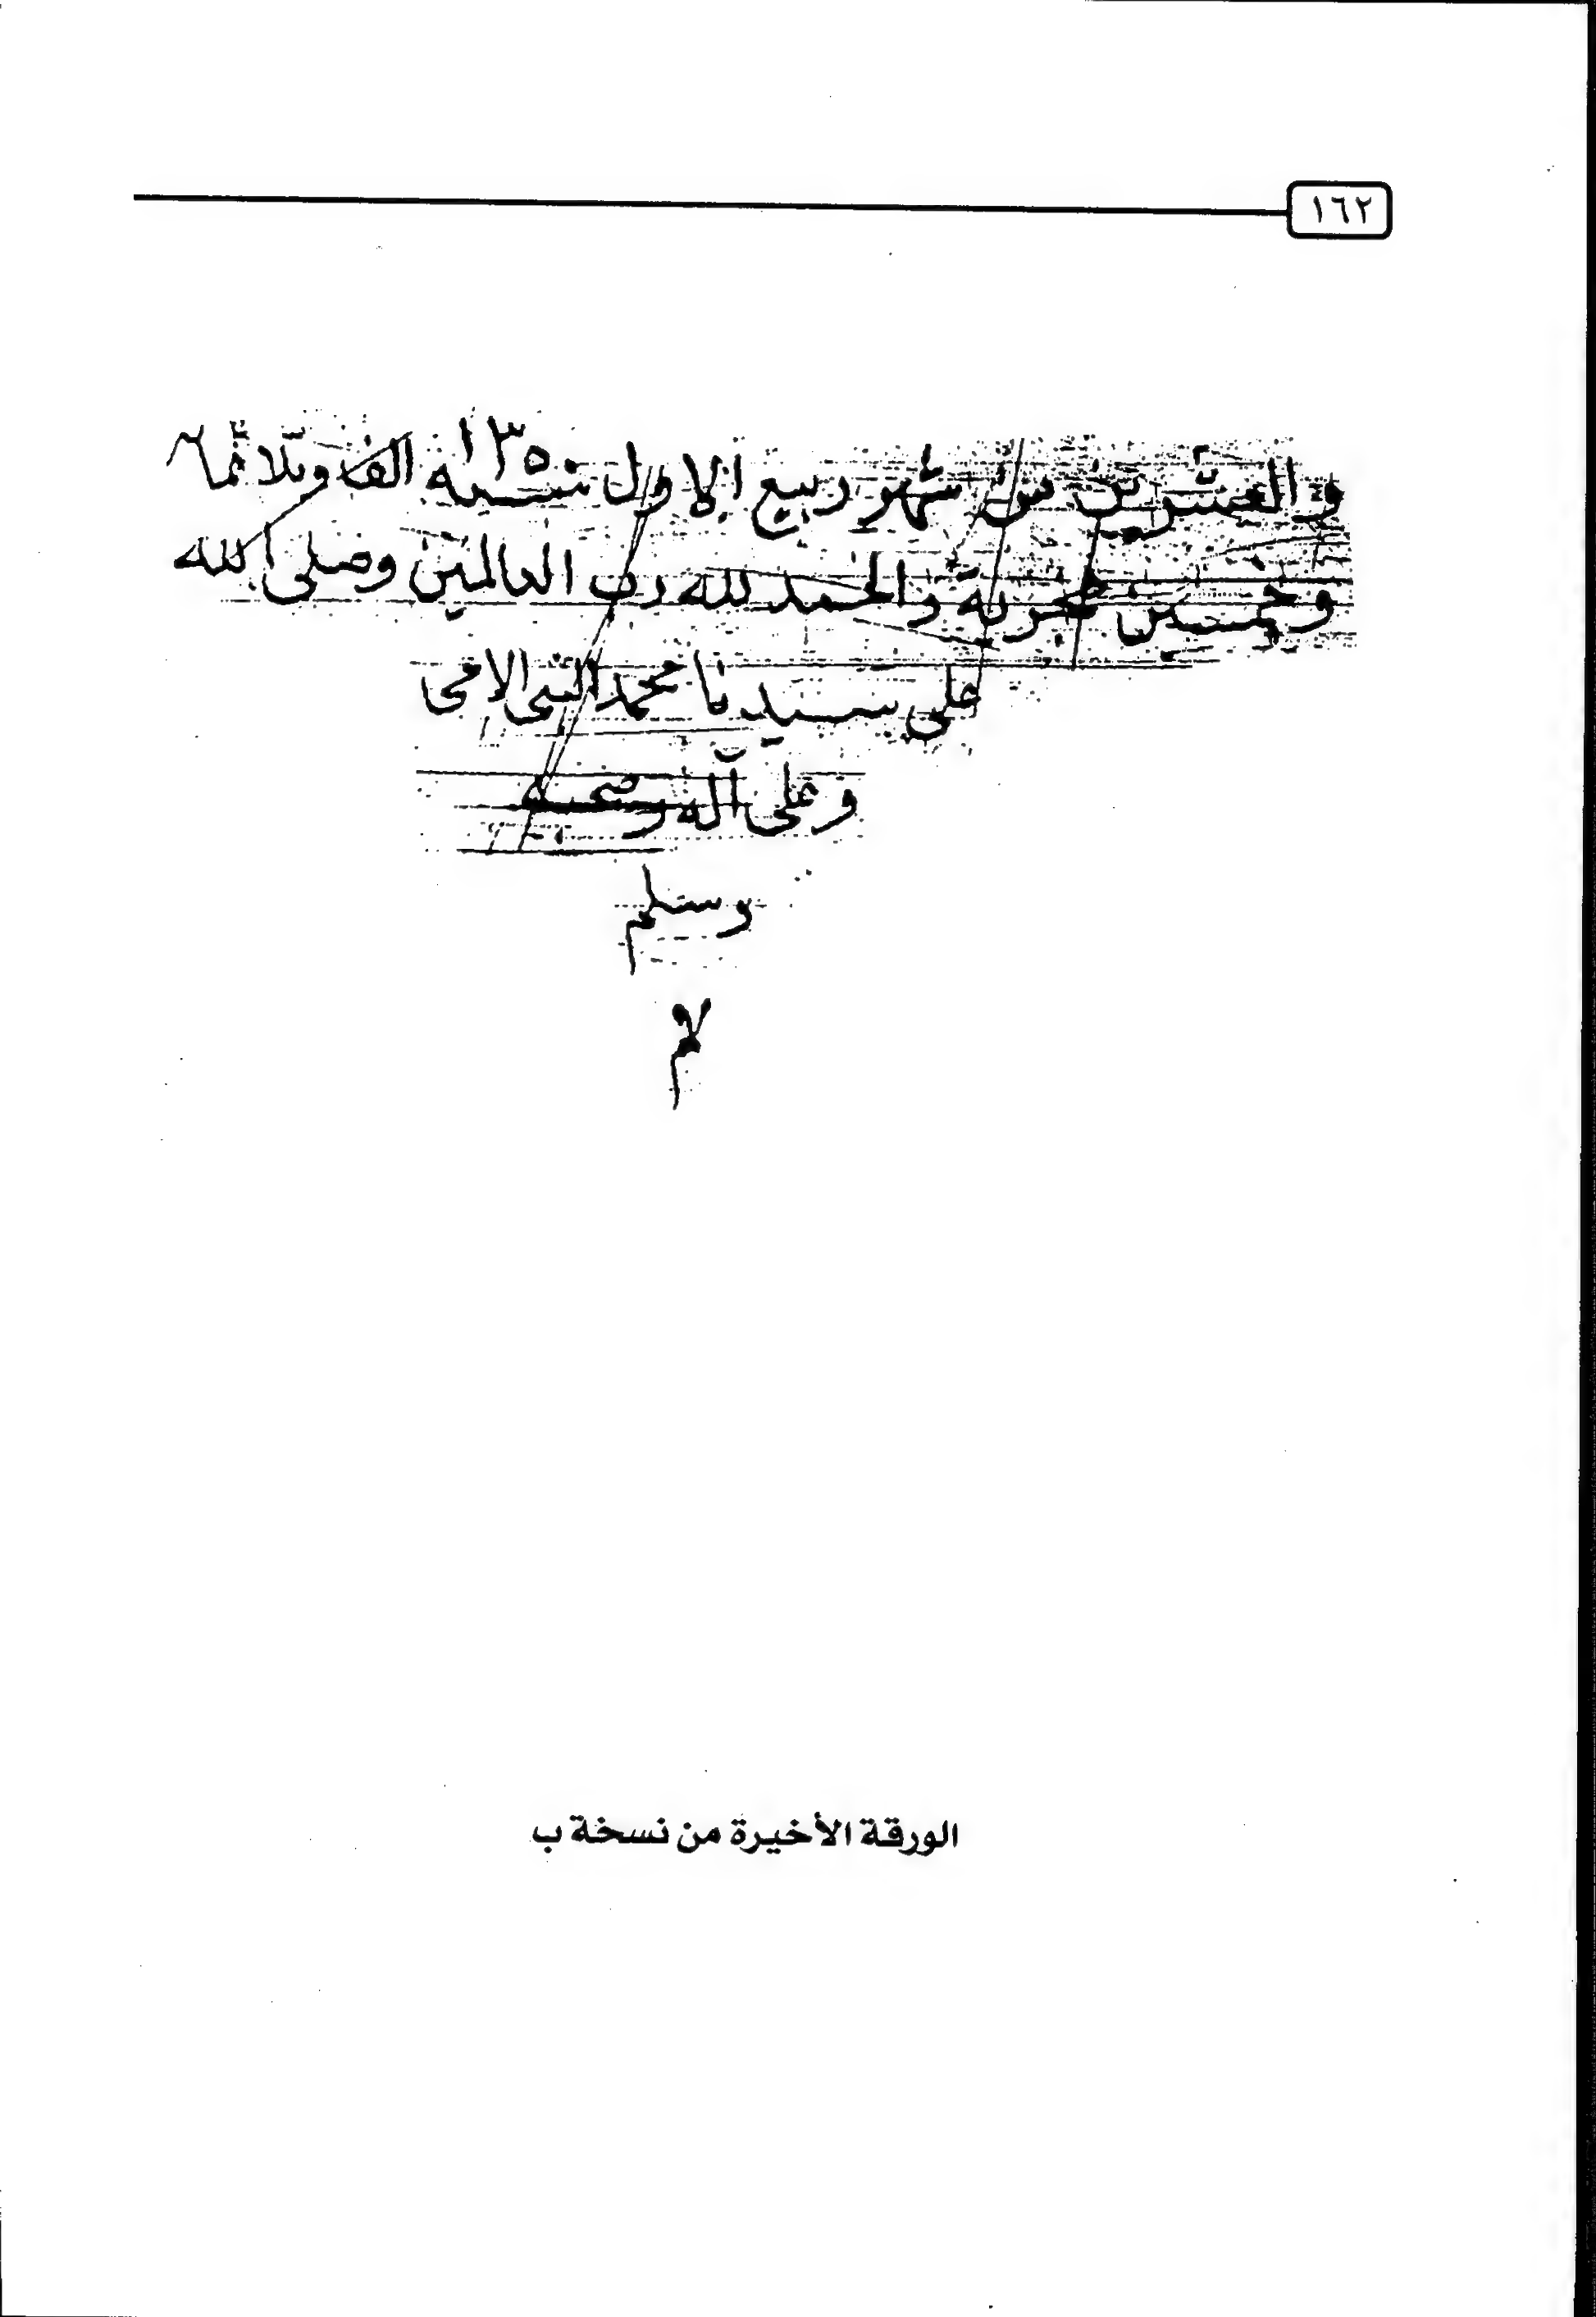 ١٦٢
والعشرين من شهر ربيع الاول سنه ١٣٥٠ الف وثلاثما
وخمسين هجرية والحمد لله رب العالمين وصلى الله
على سيدنا محمد النبي الامي
وعلى آله وصحبه
وسلم
م
الورقة الأخيرة من نسخة ب